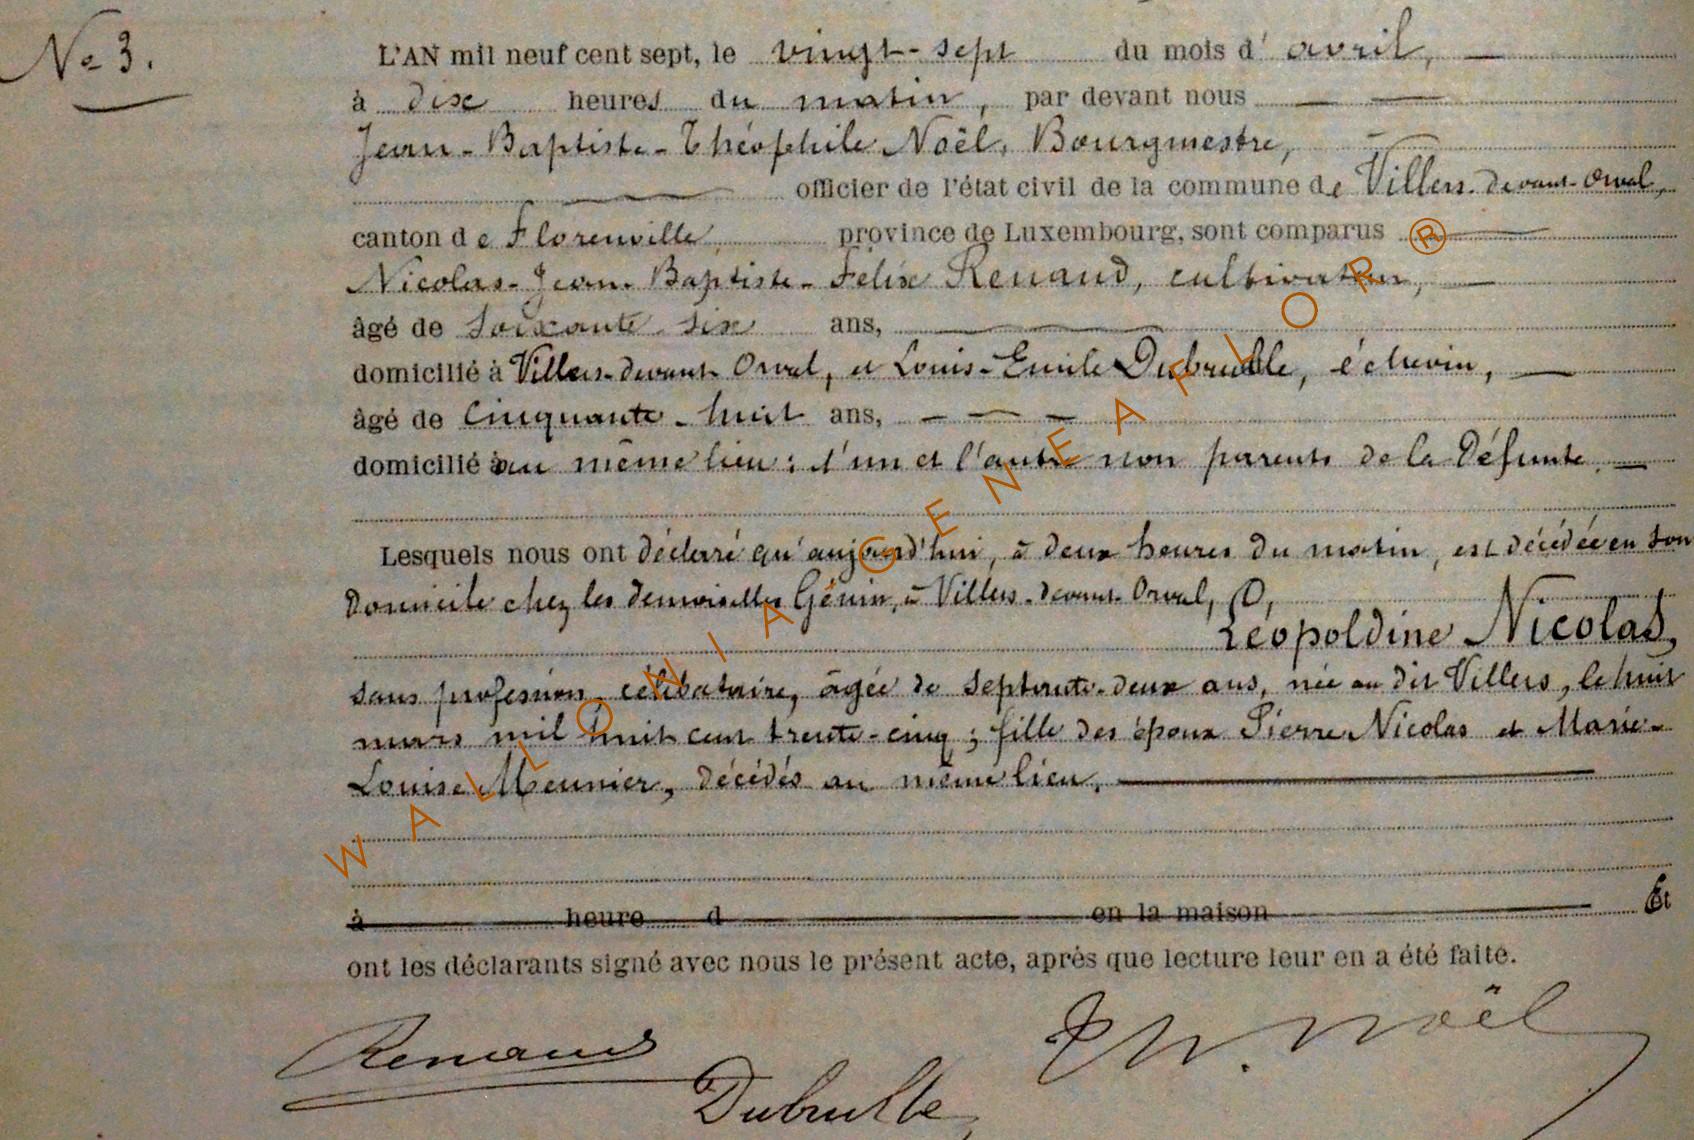 No 3.
L'AN mil neuf cent sept, le vingt-sept du mois d'avril,
à dix heures du matin, par devant nous
Jean-Baptiste-Théophile Noël, Bourgmestre,
officier de l'état civil de la commune de Villers-devant-Orval,
canton de Florenville province de Luxembourg, sont comparus
Nicolas-Jean-Baptiste-Félix Renaud, cultivateur,
âgé de soixante-six ans,
domicilié à Villers-devant-Orval, et Louis-Emile Dubrulle, échevin,
âgé de cinquante-huit ans,
domicilié au même lieu ; l'un et l'autre non parents de la Défunte.
Lesquels nous ont déclaré qu'aujourd'hui, à deux heures du matin, est décédée en son
domicile chez les demoiselles Génin, à Villers-devant-Orval,
Léopoldine Nicolas,
sans profession, célibataire, âgée de septante-deux ans, née au dit Villers, le huit
mars mil huit cent trente-cinq ; fille des époux Pierre Nicolas et Marie-
Louise Meunier, décédés au même lieu.
à heure d en la maison Et
ont les déclarants signé avec nous le présent acte, après que lecture leur en a été faite.
Renaud
Dubrulle
Th. Noël
WALLONIA GENEAFLOR ®